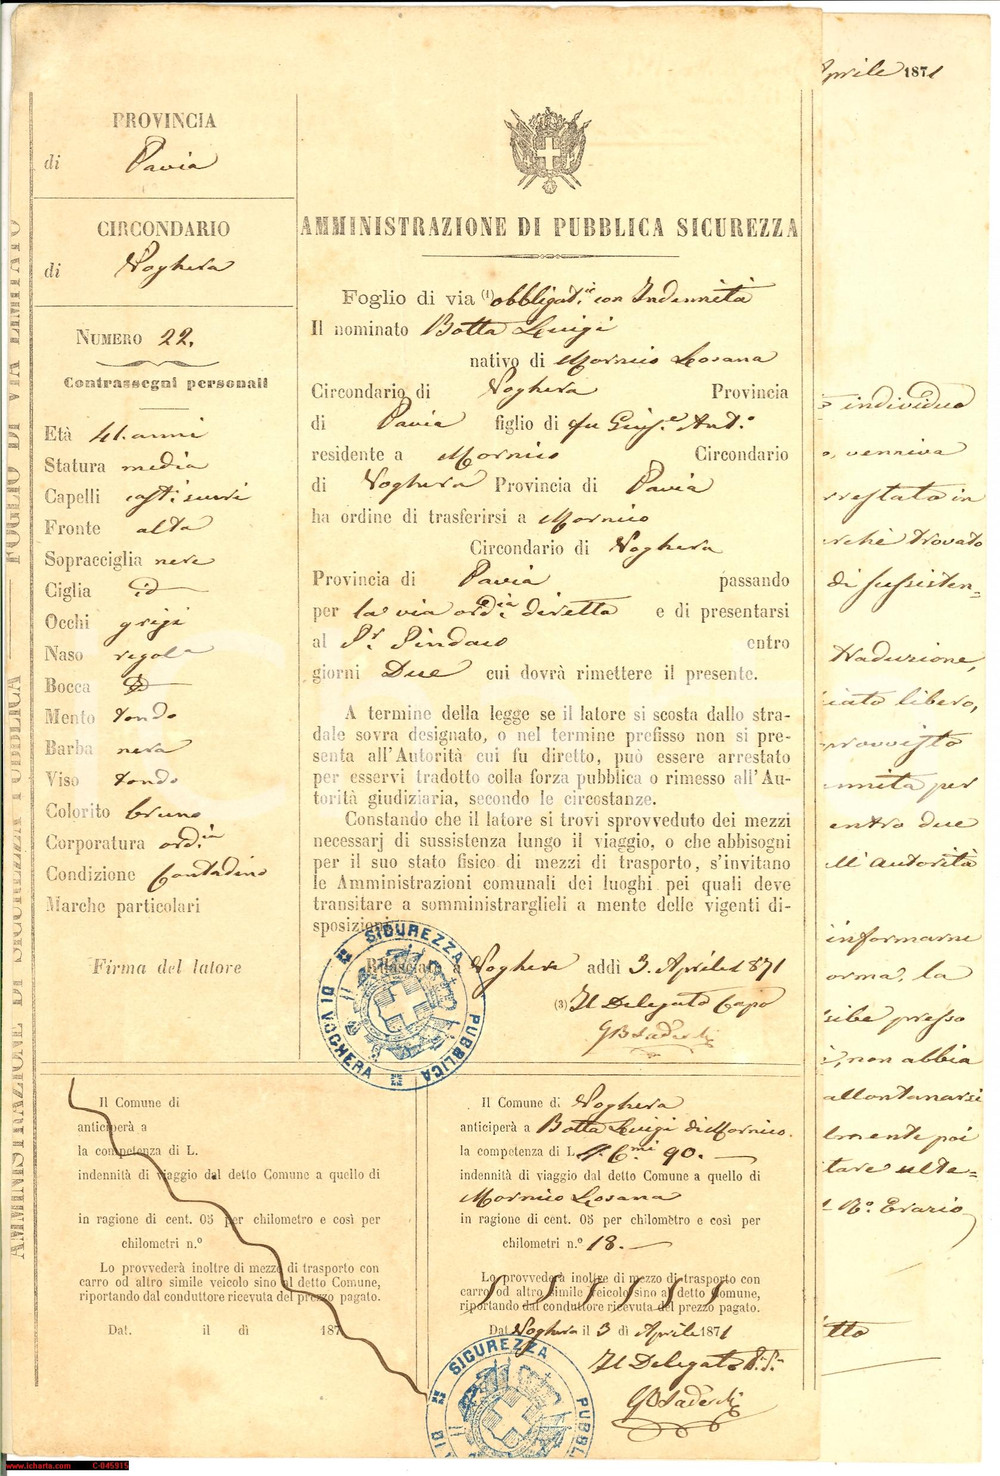 AMMINISTRAZIONE DI SICUREZZA PUBBLICA — FOGLIO DI VIA LIMITATO
PROVINCIA
di Pavia
CIRCONDARIO
di Voghera
NUMERO 22.
Contrassegni personali
Età 41. anni
Statura media
Capelli casti scuri
Fronte alta
Sopracciglia nere
Ciglia id
Occhi grigi
Naso regole
Bocca id
Mento tondo
Barba nera
Viso tondo
Colorito bruno
Corporatura ordia
Condizione Contadino
Marche particolari
Firma del latore
AMMINISTRAZIONE DI PUBBLICA SICUREZZA
Foglio di via (1) obbligat.e con Indennità
Il nominato Botta Luigi
nativo di Mornico Losana
Circondario di Voghera Provincia
di Pavia figlio di fu Gius.e Ant.o
residente a Mornico Circondario
di Voghera Provincia di Pavia
ha ordine di trasferirsi a Mornico
Circondario di Voghera
Provincia di Pavia passando
per la via ord.ia diretta e di presentarsi
al Sr. Sindaco entro
giorni Due cui dovrà rimettere il presente.
A termine della legge se il latore si scosta dallo stra-
dale sovra designato, o nel termine prefisso non si pre-
senta all'Autorità cui fu diretto, può essere arrestato
per esservi tradotto colla forza pubblica o rimesso all'Au-
torità giudiziaria, secondo le circostanze.
Constando che il latore si trovi sprovveduto dei mezzi
necessarj di sussistenza lungo il viaggio, o che abbisogni
per il suo stato fisico di mezzi di trasporto, s'invitano
le Amministrazioni comunali dei luoghi pei quali deve
transitare a somministrarglieli a mente delle vigenti di-
sposizioni.
Rilasciato a Voghera addì 3. Aprile 1871
(3) Il Delegato Capo
SICUREZZA PUBBLICA DI VOGHERA
Il Comune di
anticiperà a
la competenza di L.
indennità di viaggio dal detto Comune a quello di
in ragione di cent. 05 per chilometro e così per
chilometri n.º
Lo provvederà inoltre di mezzo di trasporto con
carro od altro simile veicolo sino al detto Comune,
riportando dal conduttore ricevuta del prezzo pagato.
Dat. il dì 187
Il Comune di Voghera
anticiperà a Botta Luigi di Mornico.
la competenza di L. C.mi 90.
indennità di viaggio dal detto Comune a quello di
Mornico Losana
in ragione di cent. 05 per chilometro e così per
chilometri n.º 18.
Lo provvederà inoltre di mezzo di trasporto con
carro od altro simile veicolo sino al detto Comune,
riportando dal conduttore ricevuta del prezzo pagato.
Dat. Voghera il 3 dì Aprile 1871
Il Delegato P.S.
SICUREZZA PUBB DI
Aprile 1871
individuo
o, veniva
rrestato in
rchè trovato
di sussisten-
traduzione,
ciato libero,
provvisto
nnità per
entro due
ll'Autorità
informarne
orma, la
sibe presso
, non abbia
allontanarsi
lmente poi
tare ulte-
l R.o Erario
tto
www.icharta.com C-045915